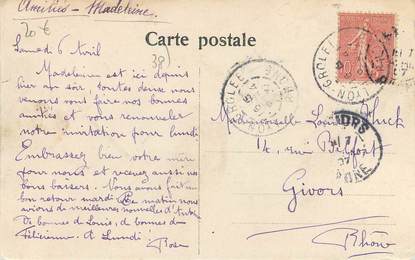 Amitiés - Madeleine.
20 €
Carte postale
Samedi 6 Avril
38)
Madeleine est ici depuis
hier au soir, toutes deux nous
venons vous faire nos bonnes
amitiés et vous renouveler
notre invitation pour lundi
Embrassez bien votre mère
pour nous et recevez aussi nos
bons baisers. Vous avons fait un
bon retour mardi Ce matin nous
avions de meilleures nouvelles
de bonnes de Louis, de bonnes de
Félicienne. A Lundi!
Rose
LYON GROLEE
LYON GROLEE RHONE
GIVORS
RHONE
Mademoiselle Louise
14, rue
Givors
Rhône